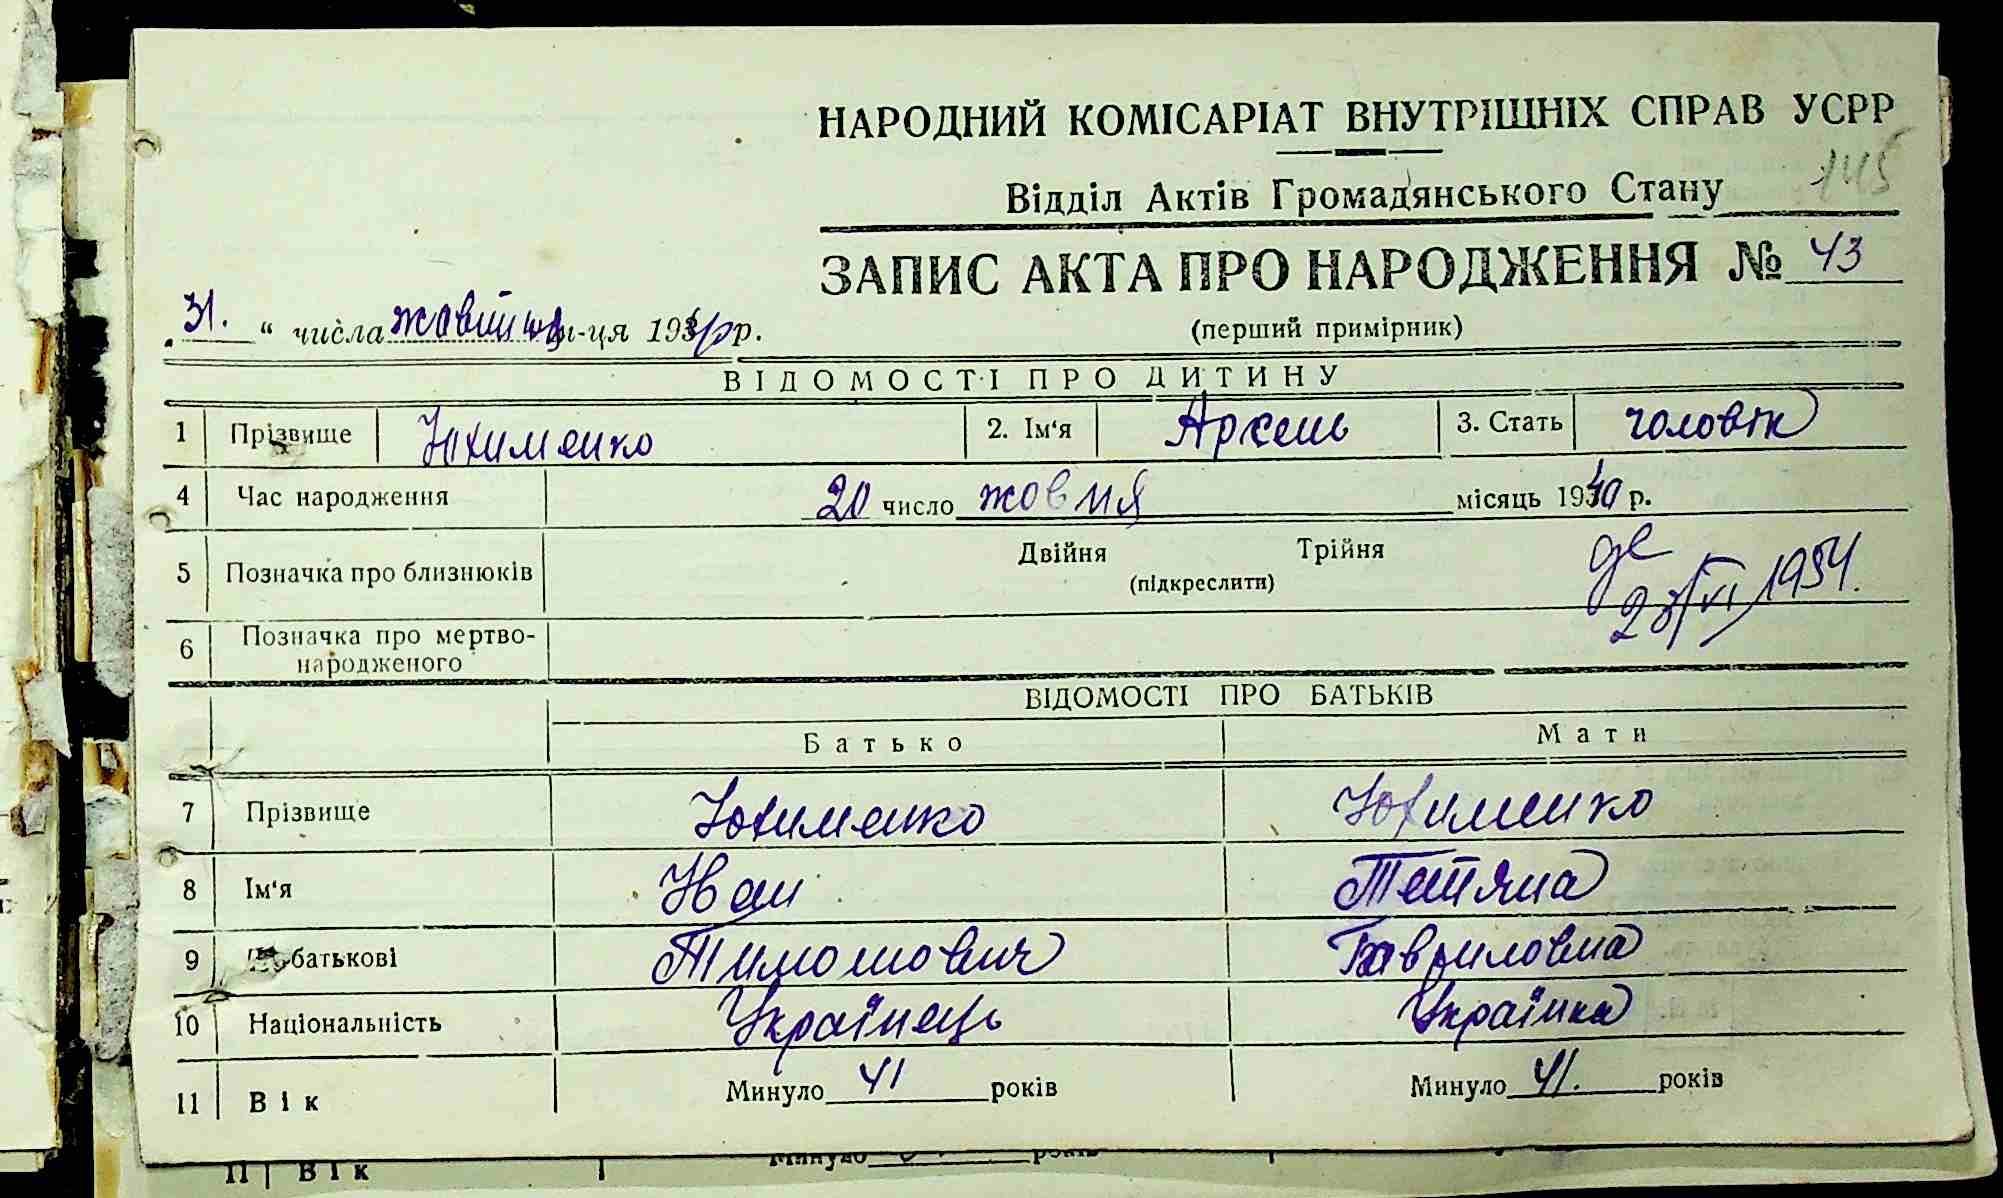 НАРОДНИЙ КОМІСАРІАТ ВНУТРІШНІХ СПРАВ УСРР
145
Відділ Актів Громадянського Стану
ЗАПИС АКТА ПРО НАРОДЖЕННЯ № 43
(перший примірник)
31. “ числа жовтня м-ця 1940 р.
ВІДОМОСТІ ПРО ДИТИНУ
1 Прізвище Юхименко 2. Ім‘я Арсень 3. Стать чоловік
4 Час народження 20 число жовня місяць 1940 р.
5 Позначка про близнюків Двійня Трійня
(підкреслити)
23/VI 1954.
6 Позначка про мертво-
народженого
ВІДОМОСТІ ПРО БАТЬКІВ
Батько Мати
7 Прізвище Юхименко Юхименко
8 Ім‘я Иван Тетяна
9 По-батькові Тимошович Гавриловна
10 Національність Українець Українка
11 Вік Минуло 41 років Минуло 41. років
11 Вік Минуло років